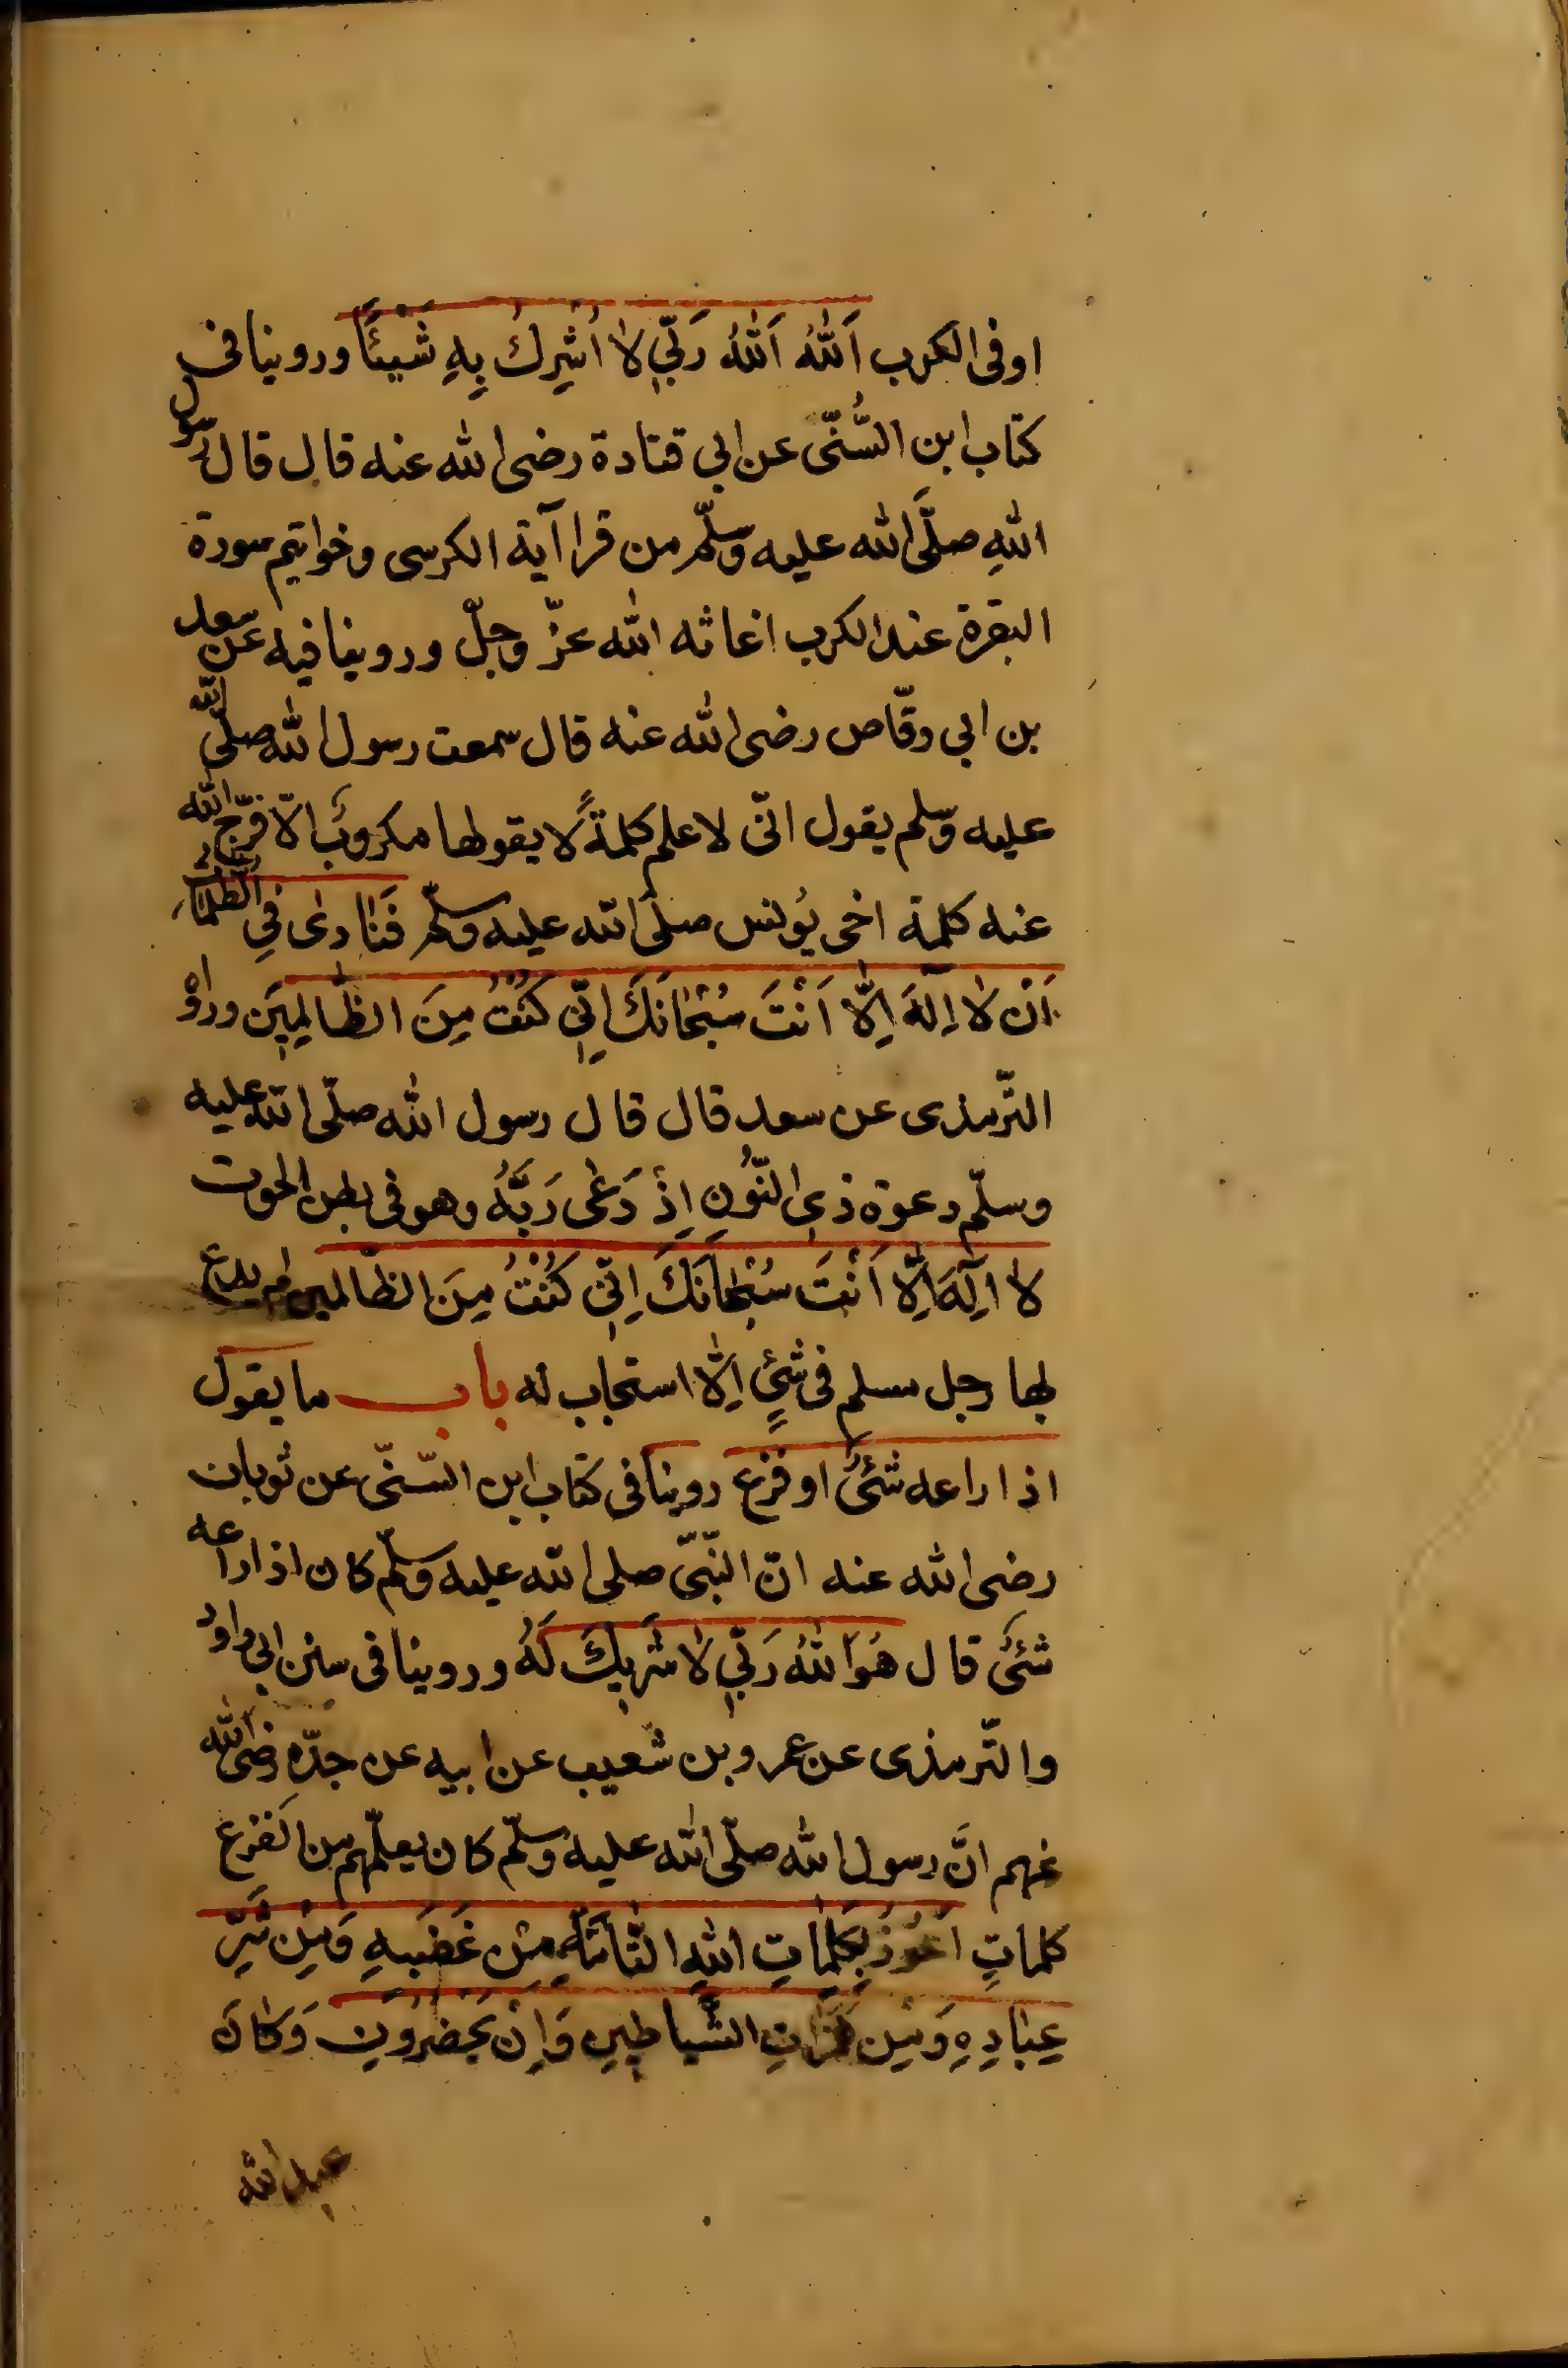 اوفى الكرب اَللّٰهُ اَللّٰهُ رَبِّي لَا اُشْرِكُ بِهِ شَيْئًا وروينا فى
كتاب ابن السُّنّى عن ابي قتادة رضى الله عنه قال قال رسول
اللهِ صلَّى الله عليه وسلّم من قرا آية الكرسى وخواتيم سورة
البقرة عند الكرب اغاثه الله عزّ وجلّ وروينا فيه عن سعد
بن ابي وقّاص رضى الله عنه قال سمعت رسول الله صلّى الله
عليه وسلم يقول انّى لاعلم كلمةً لا يقولها مكروبٌ الّا فرّج الله
عنه كلمة اخى يُونس صلّى الله عليه وسلّم فَنَادٰى فِي الظُّلُمَاتِ
اَنْ لَا اِلٰهَ اِلَّا اَنْتَ سُبْحَانَكَ اِنِّي كُنْتُ مِنَ الظَّالِمِينَ ورواهُ
التّرمذى عن سعد قال قال رسول الله صلّى الله عليه
وسلّم دعوة ذِى النُّونِ اِذْ دَعٰى رَبَّهُ وهو فى بطن الحوت
لَا اِلٰهَ اِلَّا اَنْتَ سُبْحَانَكَ اِنِّي كُنْتُ مِنَ الظّالمين لم يدع
بها رجل مسلم فى شَئٍ اِلَّا استجاب له باب ما يقول
اذا راعه شئٌ او فزع روينا فى كتاب ابن السّنّى عن ثوبان
رضى الله عنه انّ النّبّى صلى الله عليه وسلّم كان اذا راعه
شئٌ قال هُوَ اللّٰهُ رَبِّي لَا شَرِيكَ لَهُ وروينا فى سنن ابى داود
والتّرمذى عن عمرو بن شعيب عن ابيه عن جدّهِ رضى الله
عنهم انَّ رسول الله صلّى الله عليه وسلّم كان يعلّمهم من الفزع
كلماتٍ اَعُوذُ بِكَلِمَاتِ اللهِ التَّامَّةِ مِنْ غَضَبِهِ وَمِنْ شَرِّ
عِبَادِهِ وَمِنْ هَمَزَاتِ الشَّيَاطِينِ وَاَنْ يَحْضُرُونِ وَكَانَ
عبد الله